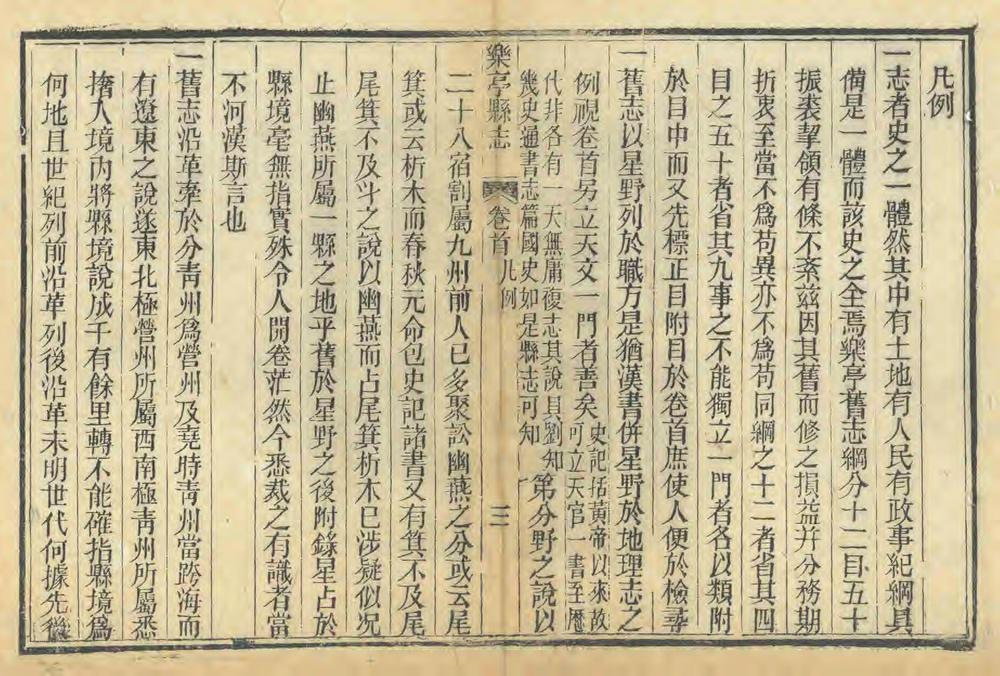 凡例
一志者史之一體然其中有土地有人民有政事紀綱具
備是一體而該史之全焉樂亭舊志綱分十二目五十
振裘挈領有條不紊茲因其舊而修之損益幷分務期
折衷至當不爲苟異亦不爲苟同綱之十二者省其四
目之五十者省其九事之不能獨立一門者各以類附
於目中而又先標正目附目於卷首庶使人便於檢尋
一舊志以星野列於職方是猶漢書併星野於地理志之
例視卷首另立天文一門者善矣史記括黃帝以來故可立天官一書至歷
代非各有一天無庸複志其說具劉知幾史通書志篇國史如是縣志可知第分野之說以
樂亭縣志 卷首 凡例 三
二十八宿割屬九州前人已多聚訟幽燕之分或云尾
箕或云析木而春秋元命包史記諸書又有箕不及尾
尾箕不及斗之說以幽燕而占尾箕析木已涉疑似况
止幽燕所屬一縣之地乎舊於星野之後附錄星占於
縣境毫無指實殊令人開卷茫然今悉裁之有識者當
不河漢斯言也
一舊志沿革牽於分靑州爲營州及堯時靑州當跨海而
有遼東之說遂東北極營州所屬西南極靑州所屬悉
攟入境內將縣境說成千有餘里轉不能確指縣境爲
何地且世紀列前沿革列後沿革未明世代何據先後